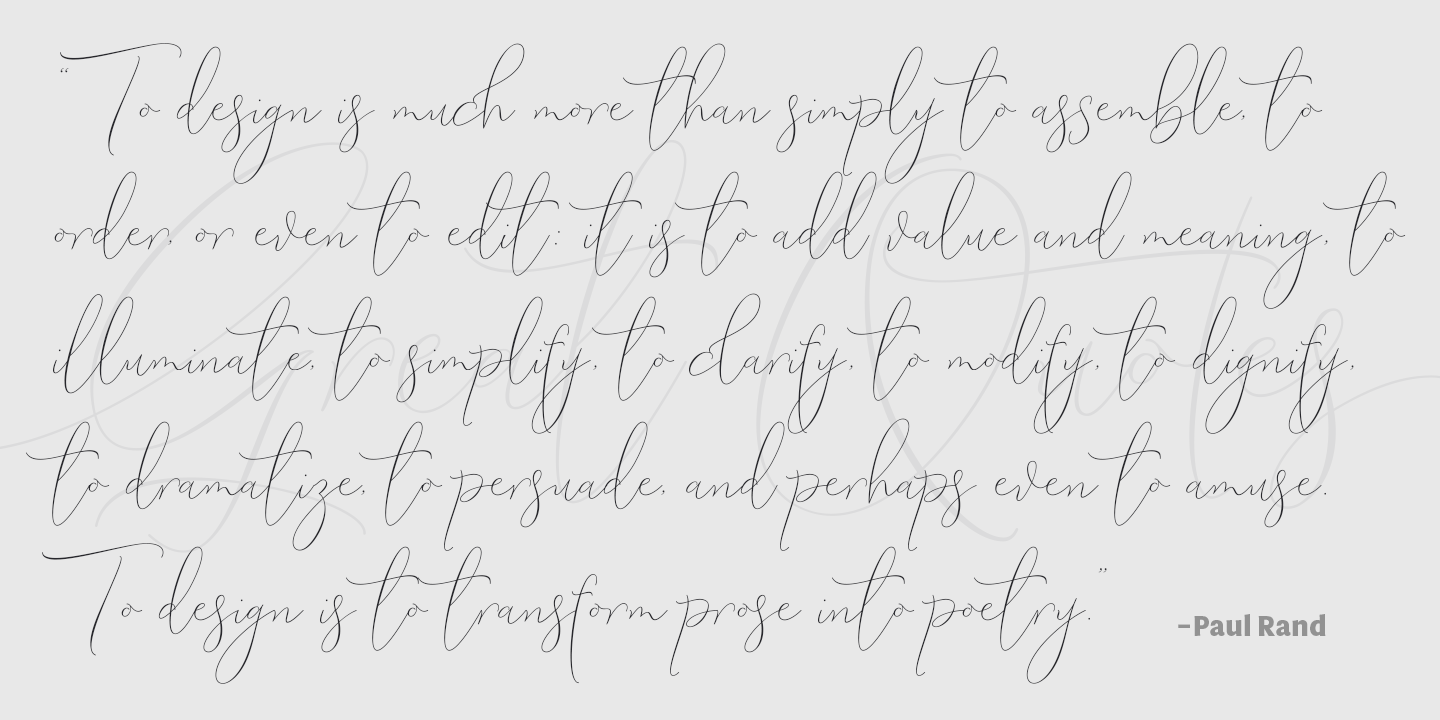 “To design is much more than simply to assemble, to
order, or even to edit: it is to add value and meaning, to
illuminate, to simplify, to clarify, to modify, to dignify,
to dramatize, to persuade, and perhaps even to amuse.
To design is to transform prose into poetry.”
–Paul Rand
Great Quotes